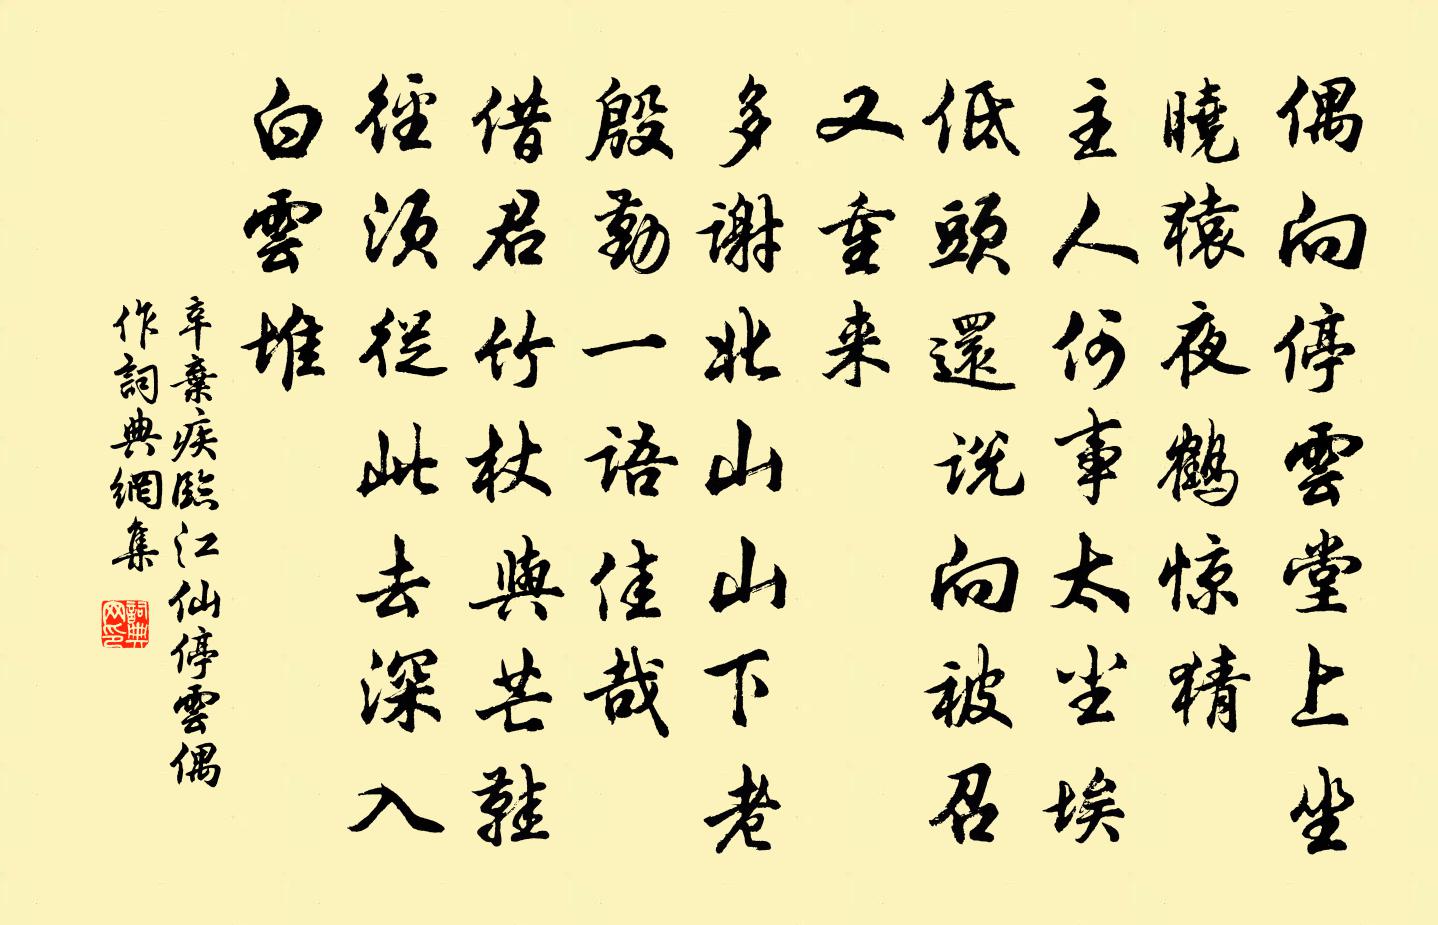 偶向停雲堂上坐
曉猿夜鶴惊猜
主人何事太尘埃
低頭還说向被召
又重来
多谢北山山下老
殷勤一语佳哉
借君竹杖與芒鞋
徑须從此去深入
白雲堆
辛棄疾臨江仙停雲偶
作詞典網集
詞典网印